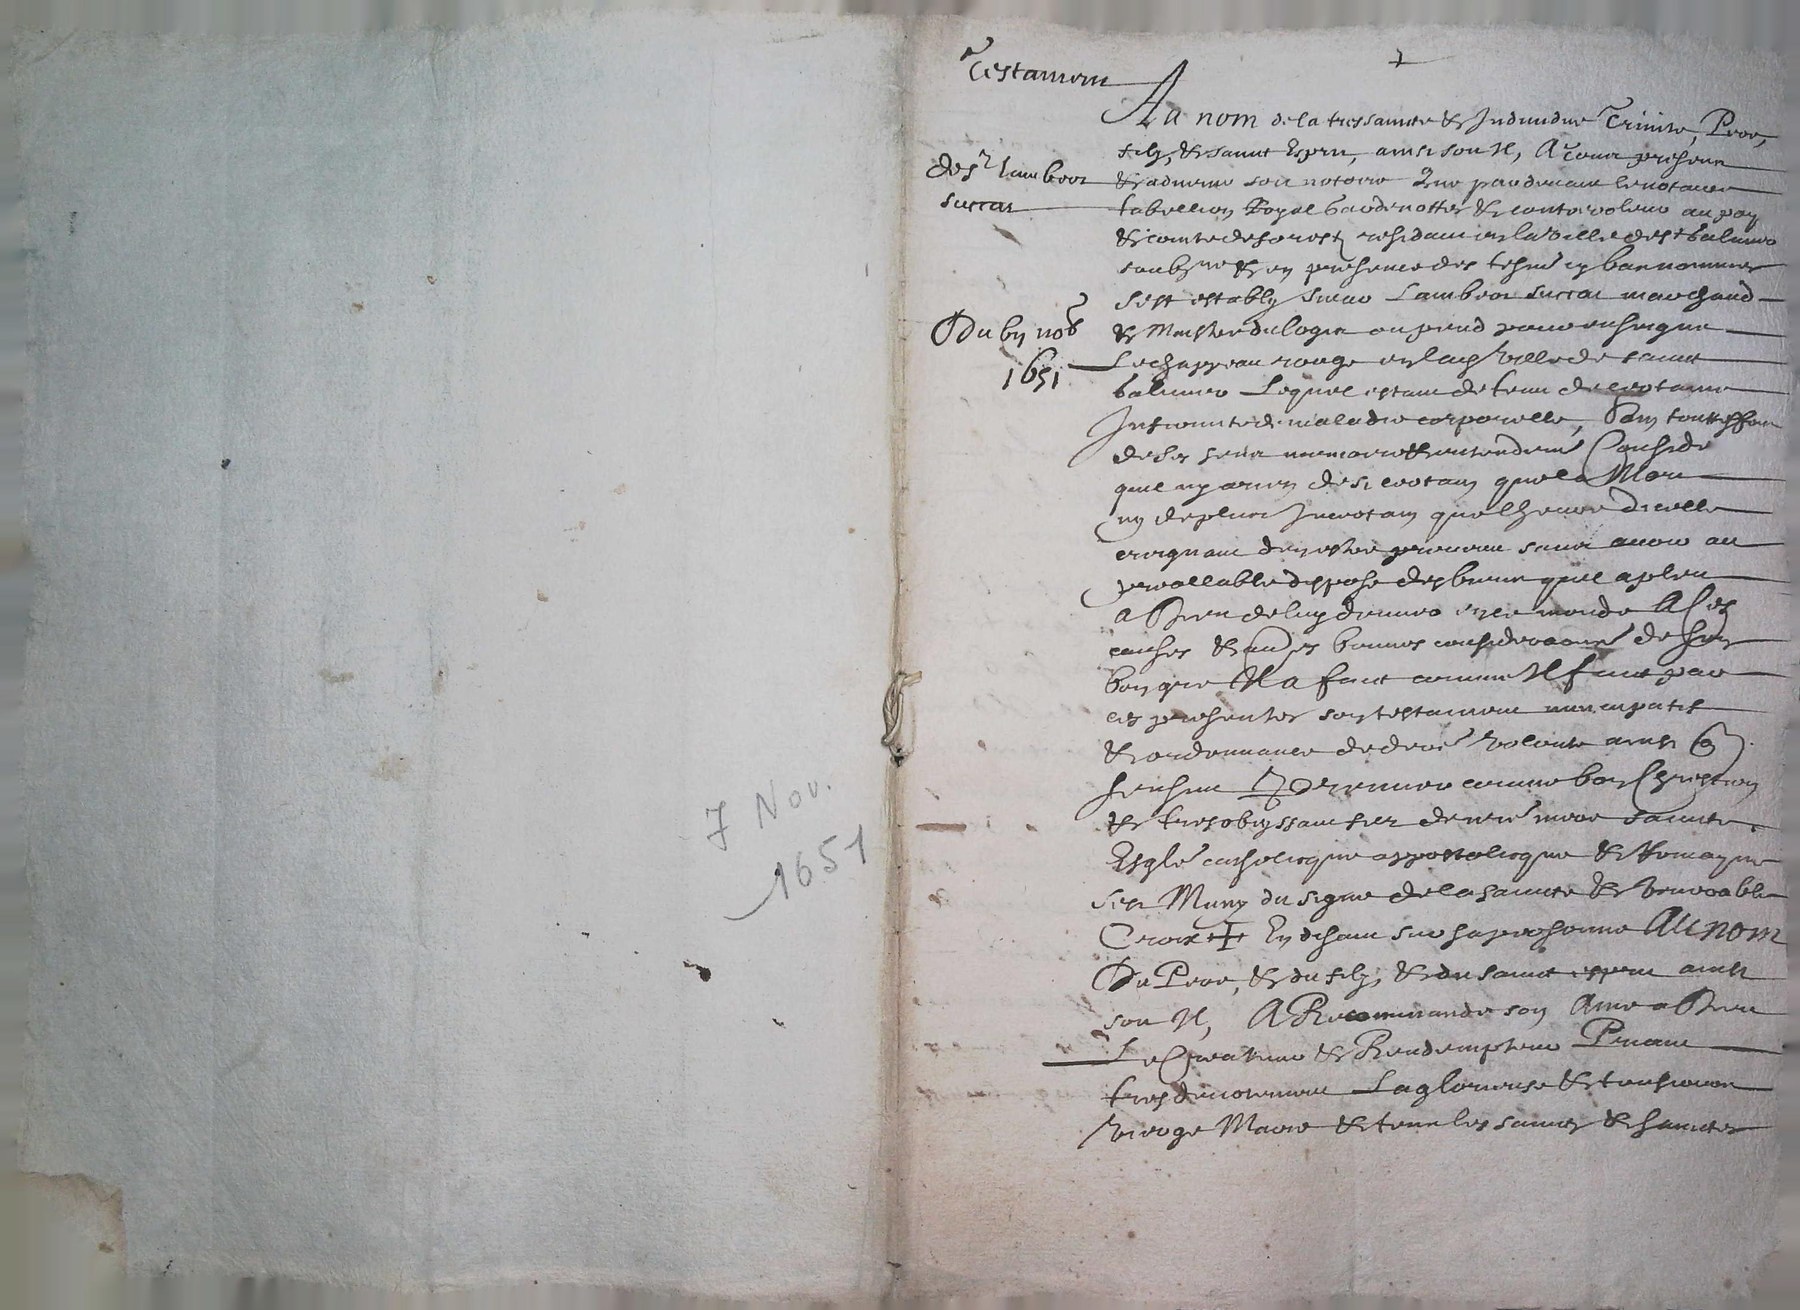 7 Nov.
1651
Testament
de sr lambert
succat
Du vij nob
1651
Au nom de la tressaincte & Individue Trinite, Pere,
filz, & sainct Esprit, ainsi soit Il, A tous presents
& advenir soit notoire Que pardevant le notaire
tabellion Royal garde nottes & controolleur au pays
& conte de forestz residant en la ville de st balmier
soubzne & en presence des tesmr cy bas nommes
sest estably sieur Lambert succat marchand
& Maistre du logis ou pend pour enseigne
Le chappeau rouge en lad ville de sainct
balmier Lequel estant detenu de certaine
Infirmite de maladie corporelle, sain touttesfois
de ses sens memoire & entendemt Conside
quil ny a rien de si certain que la Mort
ny de plus Incertain que lheure dicelle
craignant den estre prevenu sans avoir au
preallable dispose des biens quil a pleu
a Dieu de luy donner en ce monde A ces
causes & aultres bonnes considerations de son
bon gre Il a faict comme Il faict par
ces presentes son testament nuncupatif
& ordonnance de dere volonte ainsi q
sensuit Et Premier comme bon Chrestien
& tres obeyssant filz de nre mere saincte
Esglé catholicque appostolicque & Romayne
sest Muny du signe de la saincte & venerable
Croix + En disant sur sa personne Au nom
Du Pere, & du filz, & du sainct esprit ainsi
soit Il, A Recommande son Ame a Dieu
Le Createur & Rendempteur Priant
tres devotement La glorieuse & tousiours
vierge Marie & tous les saincts & sainctes